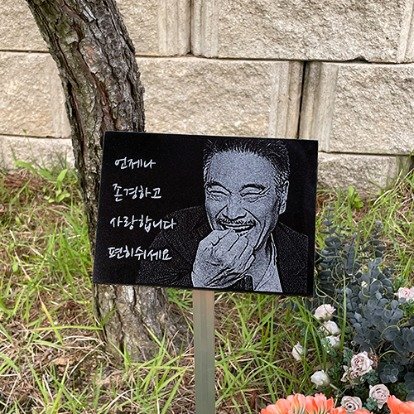 언제나
존경하고
사랑합니다
편히쉬세요